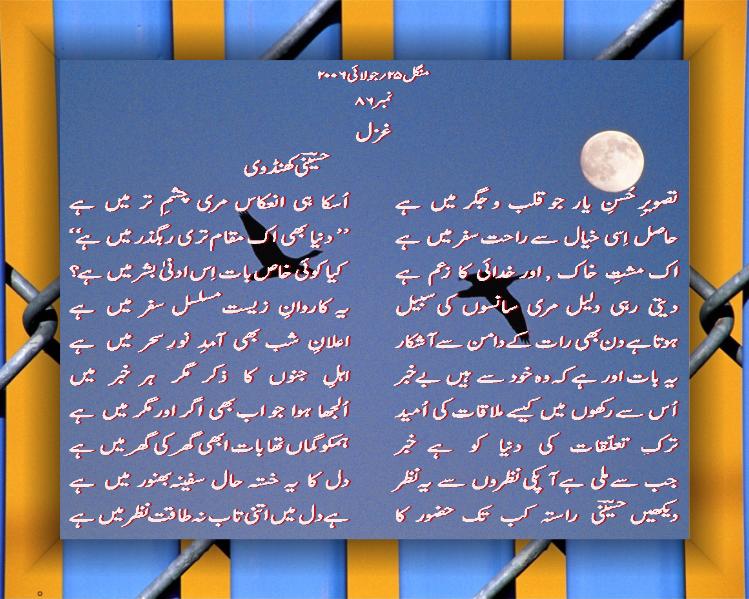 منگل ۲۵؍جولائی ۲۰۰۶
نمبر ۸۶
غزل
حسینؔی کھنڈوی
تصویرِ حُسنِ یار جو قلب و جگر میں ہے اُسکا ہی انعکاس مری چشمِ تر میں ہے
حاصل اِسی خیال سے راحت سفر میں ہے ’’دنیا بھی اک مقام تری رہگذر میں ہے‘‘
اک مشتِ خاک , اور خدائی کا زعم ہے کیا کوئی خاص بات اِس ادنیٰ بشر میں ہے؟
دیتی رہی دلیل مری سانسوں کی سبیل یہ کاروانِ زیست مسلسل سفر میں ہے
ہوتا ہے دن بھی رات کے دامن سے آشکار اعلانِ شب بھی آمدِ نورِ سحر میں ہے
یہ بات اور ہے کہ وہ خود سے ہیں بے خبر اہلِ جنوں کا ذکر مگر ہر خبر میں
اُس سے رکھوں میں کیسے ملاقات کی اُمید اُلجھا ہوا جو اب بھی اگر اور مگر میں ہے
ترکِ تعلّقات کی دنیا کو ہے خبر ہمکو گماں تھا بات ابھی گھر کی گھر میں ہے
جب سے ملی ہے آپکی نظروں سے یہ نظر دل کا یہ خستہ حال سفینہ بھنور میں ہے
دیکھیں حسینؔی راستہ کب تک حضور کا ہے دل میں اتنی تاب نہ طاقت نظر میں ہے